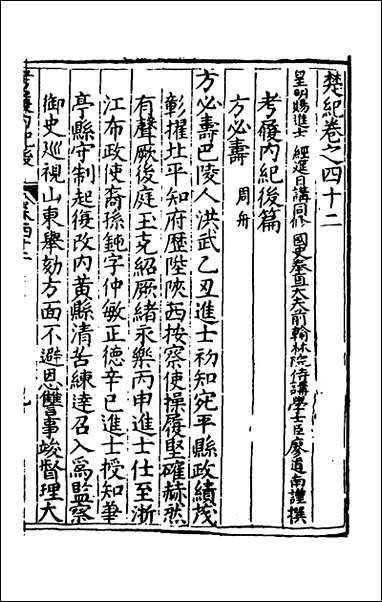 楚紀卷之四十二
皇明賜進士 經筵日講同修 國史奉直大夫前翰林院侍講學士臣廖道南謹撰
考履内紀後篇
方必壽 周舟
方必壽巴陵人洪武乙丑進士初知宛平縣政績茂
彰擢北平知府歴陞陜西按察使操履堅確赫然
有聲厥後庭玉克紹厥緒永樂丙申進士仕至浙
江布政使裔孫鈍字仲敏正德辛巳進士授知華
亭縣守制起復改内黄縣清苦練達召入為監察
御史巡視山東舉劾方面不避恩讐事竣督理大